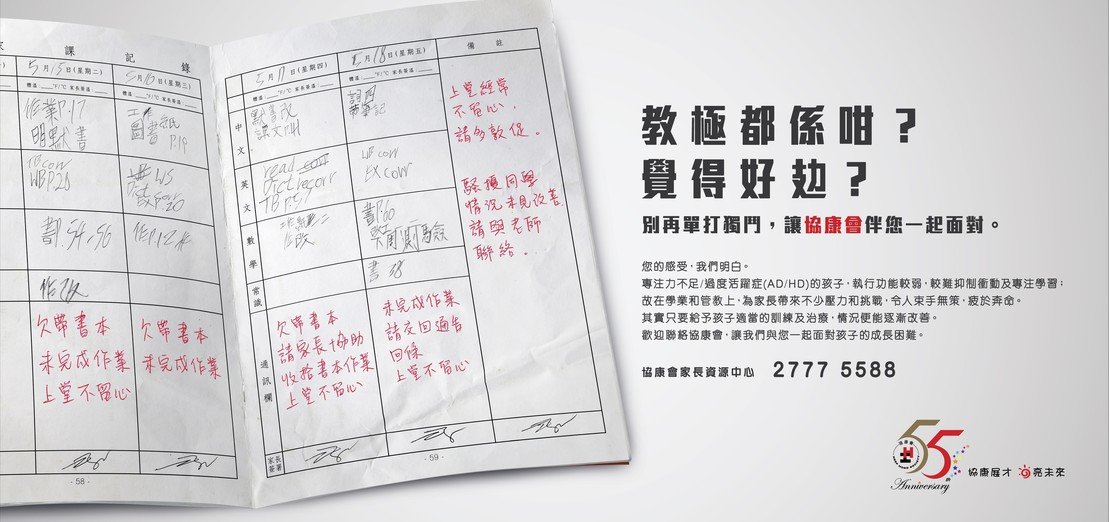 家 課 記 錄
5月15日(星期二)
5月16日(星期三)
體溫 °F/°C 家長簽署
體溫 °F/°C 家長簽署
作業P.17
明默書
圖書
P.19
TB corr
WBP.28
WS
P.20
書P.54-56
作P.12
作改
欠帶書本
未完成作業
上堂不留心
欠帶書本
未完成作業
- 58 -
5月17日(星期四)
5月18日(星期五)
備 註
體溫 °F/°C 家長簽署
體溫 °F/°C 家長簽署
中文
默書改
筆記
英文
read corr
Dict corr
TB P.57
WB corr
EX corr
數學
作改
書P.60
測驗
常識
書 38
通訊欄
欠帶書本
請家長協助
收拾書本作業
上堂不留心
未完成作業
請交回通告
回條
上堂不留心
上堂經常
不留心,
請多敦促。
騷擾同學
情況未見改善,
請與老師
聯絡。
家長簽署
- 59 -
教極都係咁?
覺得好攰?
別再單打獨鬥,讓協康會伴您一起面對。
您的感受,我們明白。
專注力不足/過度活躍症(AD/HD)的孩子,執行功能較弱,較難抑制衝動及專注學習;
故在學業和管教上,為家長帶來不少壓力和挑戰,令人束手無策,疲於奔命。
其實只要給予孩子適當的訓練及治療,情況更能逐漸改善。
歡迎聯絡協康會,讓我們與您一起面對孩子的成長困難。
協康會家長資源中心 2777 5588
協康會
55
Anniversary
協康展才 亮未來